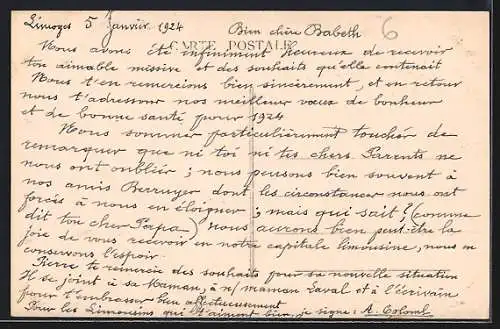 Limoges 5 Janvier 1924 Bien chère Babeth 6
CARTE POSTALE
Nous avons été infiniment heureux de recevoir
ton aimable missive et des souhaits qu'elle contenait
Nous t'en remercions bien sincèrement, et en retour
nous t'adressons nos meilleurs vœux de bonheur
et de bonne santé pour 1924
Nous sommes particulièrement touchés de
remarquer que ni toi ni tes chers Parents ne
nous ont oubliés ; nous pensons bien souvent à
nos amis Berruyer dont les circonstances nous ont
forcés à nous en éloigner ; mais qui sait ? (comme
dit ton cher Papa) nous aurons bien peut-être la
joie de vous recevoir en notre capitale limousine, nous en
conservons l'espoir.
Pierre te remercie des souhaits pour sa nouvelle situation
Il se joint à sa Maman, à m/ maman Laval et à l'écrivain
pour t'embrasser bien affectueusement
Pour les Limousins qui t'aiment bien, je signe : A. Colomb